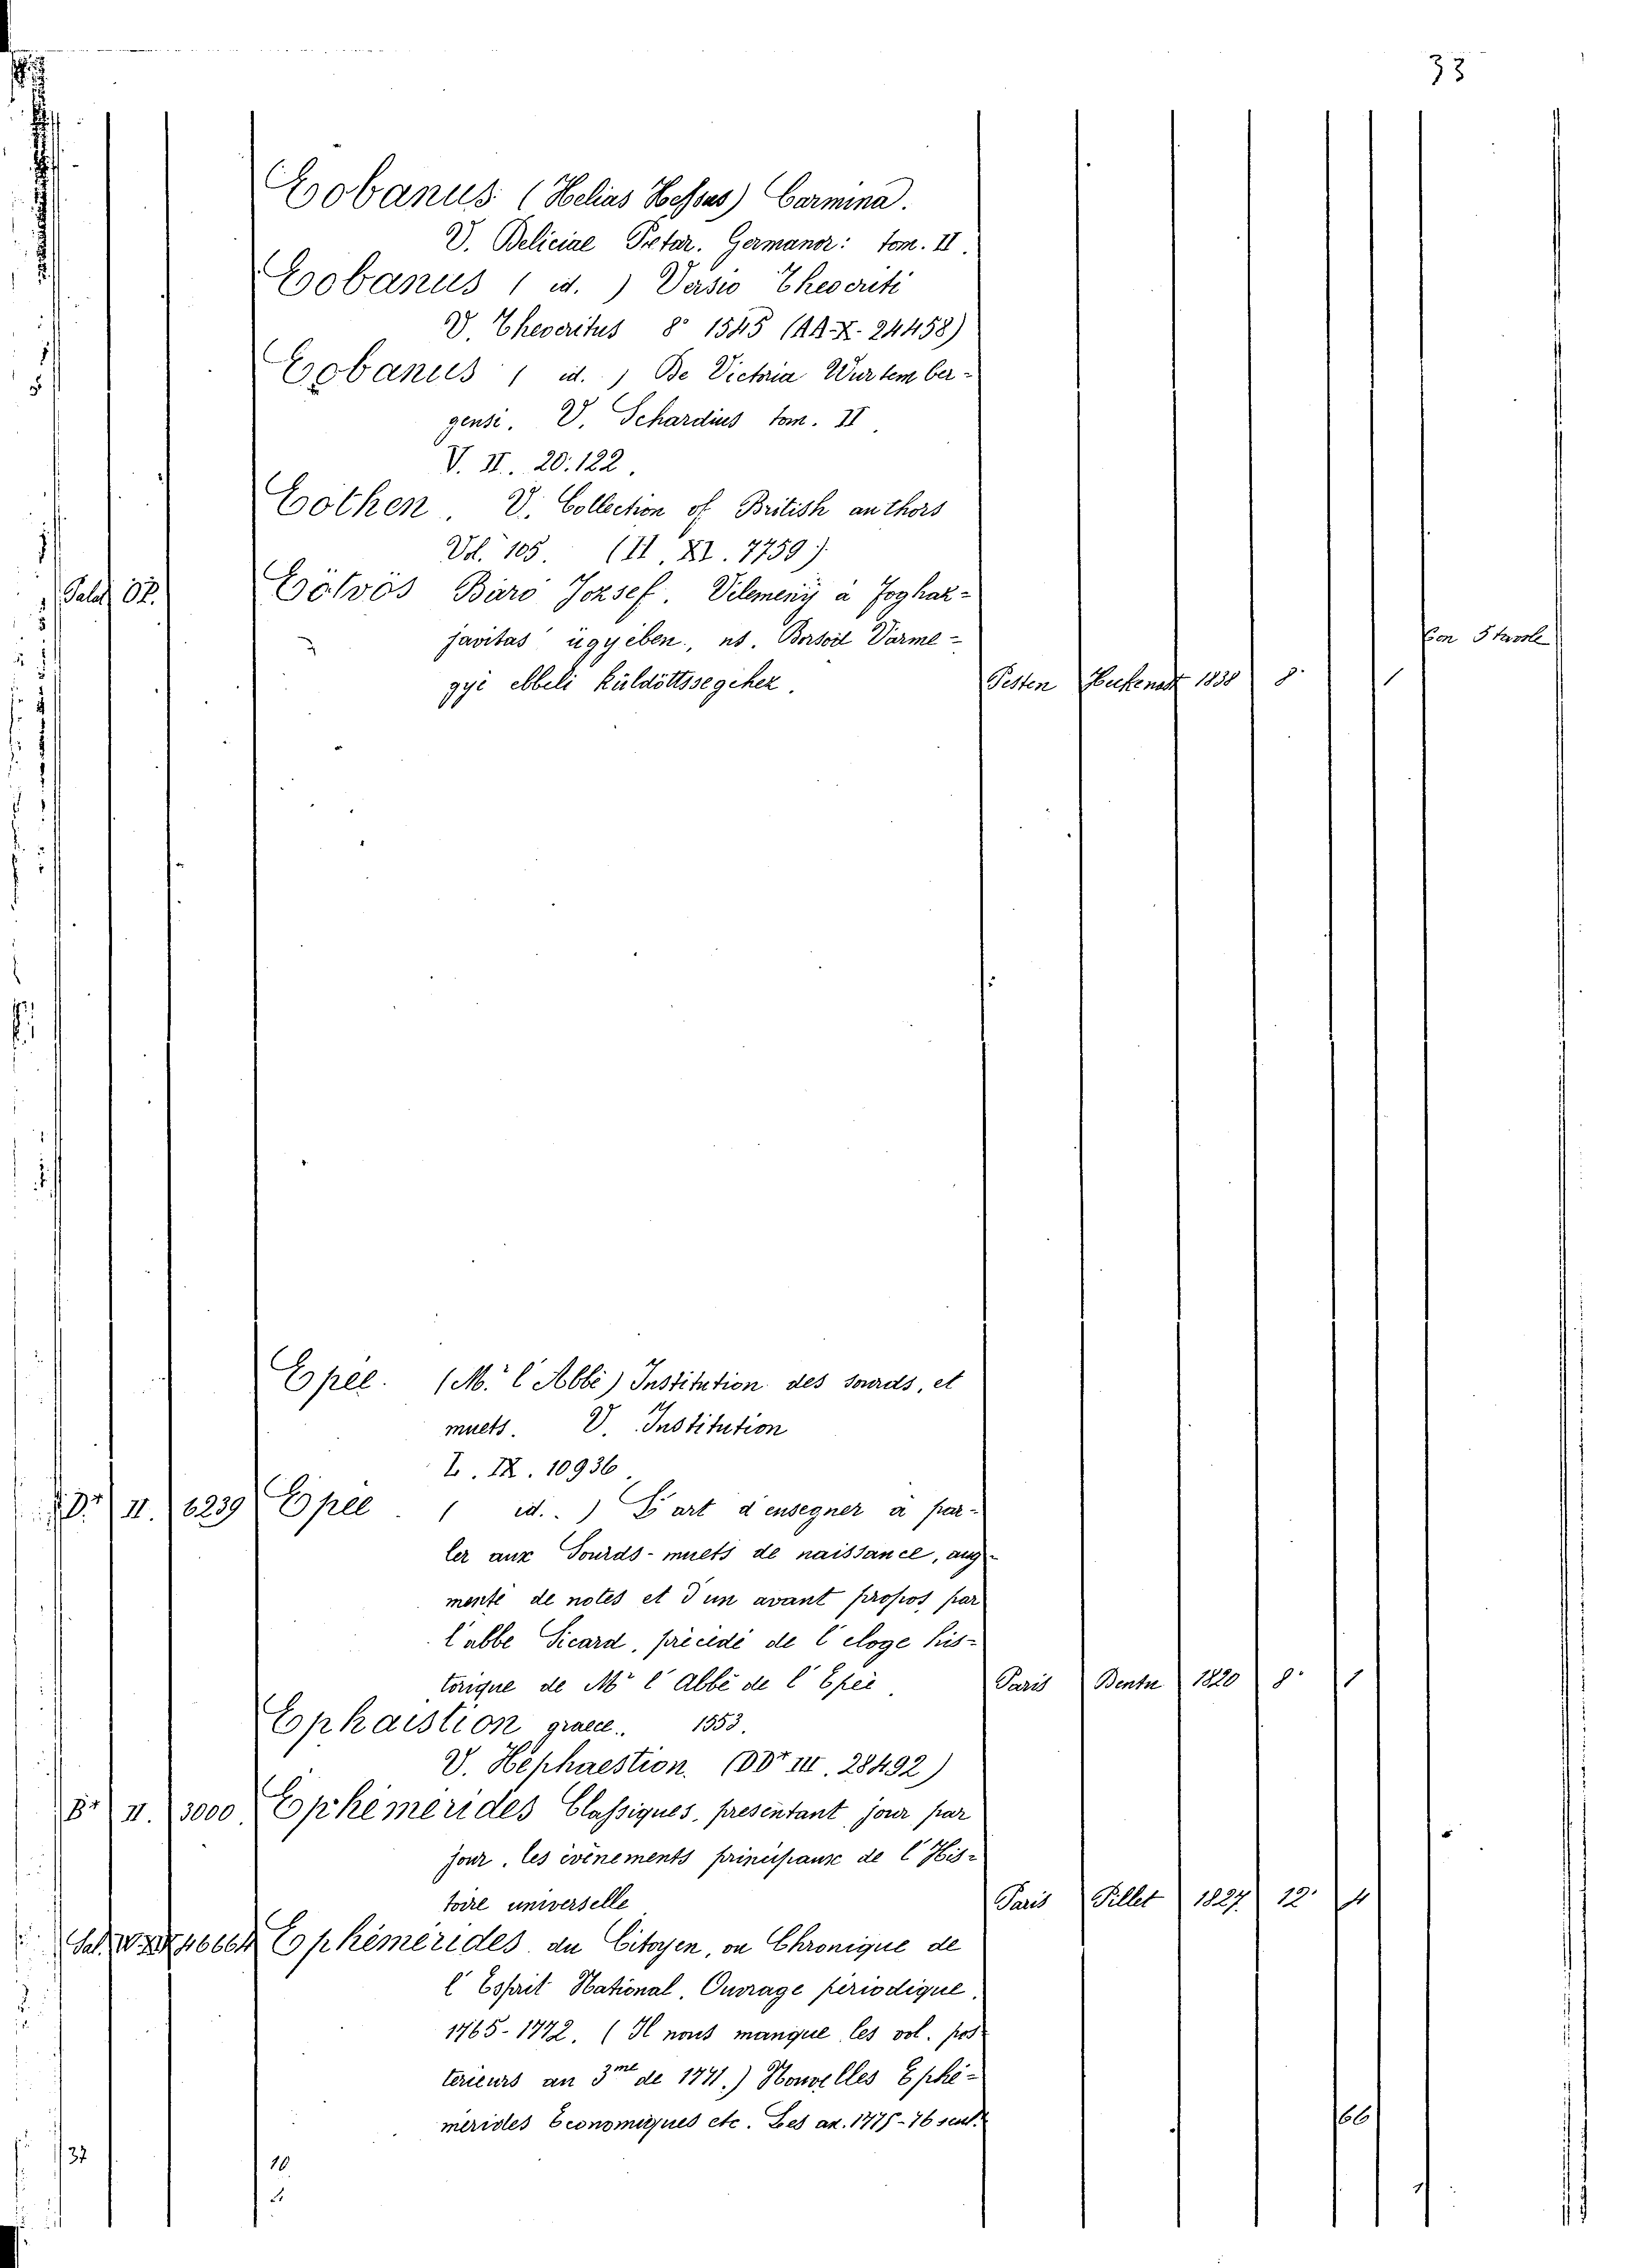 33
Eobanus (Helias Hessus) Carmina.
V. Deliciae Poetar. Germanor: tom. II.
Eobanus (id.) Versio Theocriti
V. Theocritus 8° 1545 (AA. X. 24458)
Eobanus (id.) De Victoria Wurtember-
gensi. V. Schardius tom. II.
V. II. 20.122.
Eöthen. V. Collection of British authors
Vol. 105. (II. XI. 7759)
Eötvös Báró József. Vélemény a Foghaz-
javitas ügyében, ns. Borsod Varme-
gye ebbeli küldöttségehez. Pesten Heckenast 1838 8° 1
Epée. (M.r l'Abbé) Institution des sourds, et
muets. V. Institution
Z. IX. 10936
D.r II. 6239 Epée. (id.) L'art d'ensegner à par-
ler aux Sourds-muets de naissance, aug-
menté de notes et d'un avant propos par
l'abbé Sicard, précédé de l'eloge his-
torique de Mr l'Abbé de l'Epée. Paris 1820 8° 1
Ephaistion graece. 1553.
V. Hephaestion. (DDr III. 28492)
Br II. 3000 Ephémérides Classiques, presentant jour par
jour, les évènements principaux de l'His-
toire universelle Paris Pillet 1827. 12° 4
46664 Ephémérides du Citoyen, ou Chronique de
l'Esprit National. Ouvrage périodique.
1765-1772. (Il nous manque les vol. pos-
terieurs au 3me de 1771.) Nouvelles Ephé-
mérides Economiques etc. Les an. 1775-76 seul. 66
37
10.